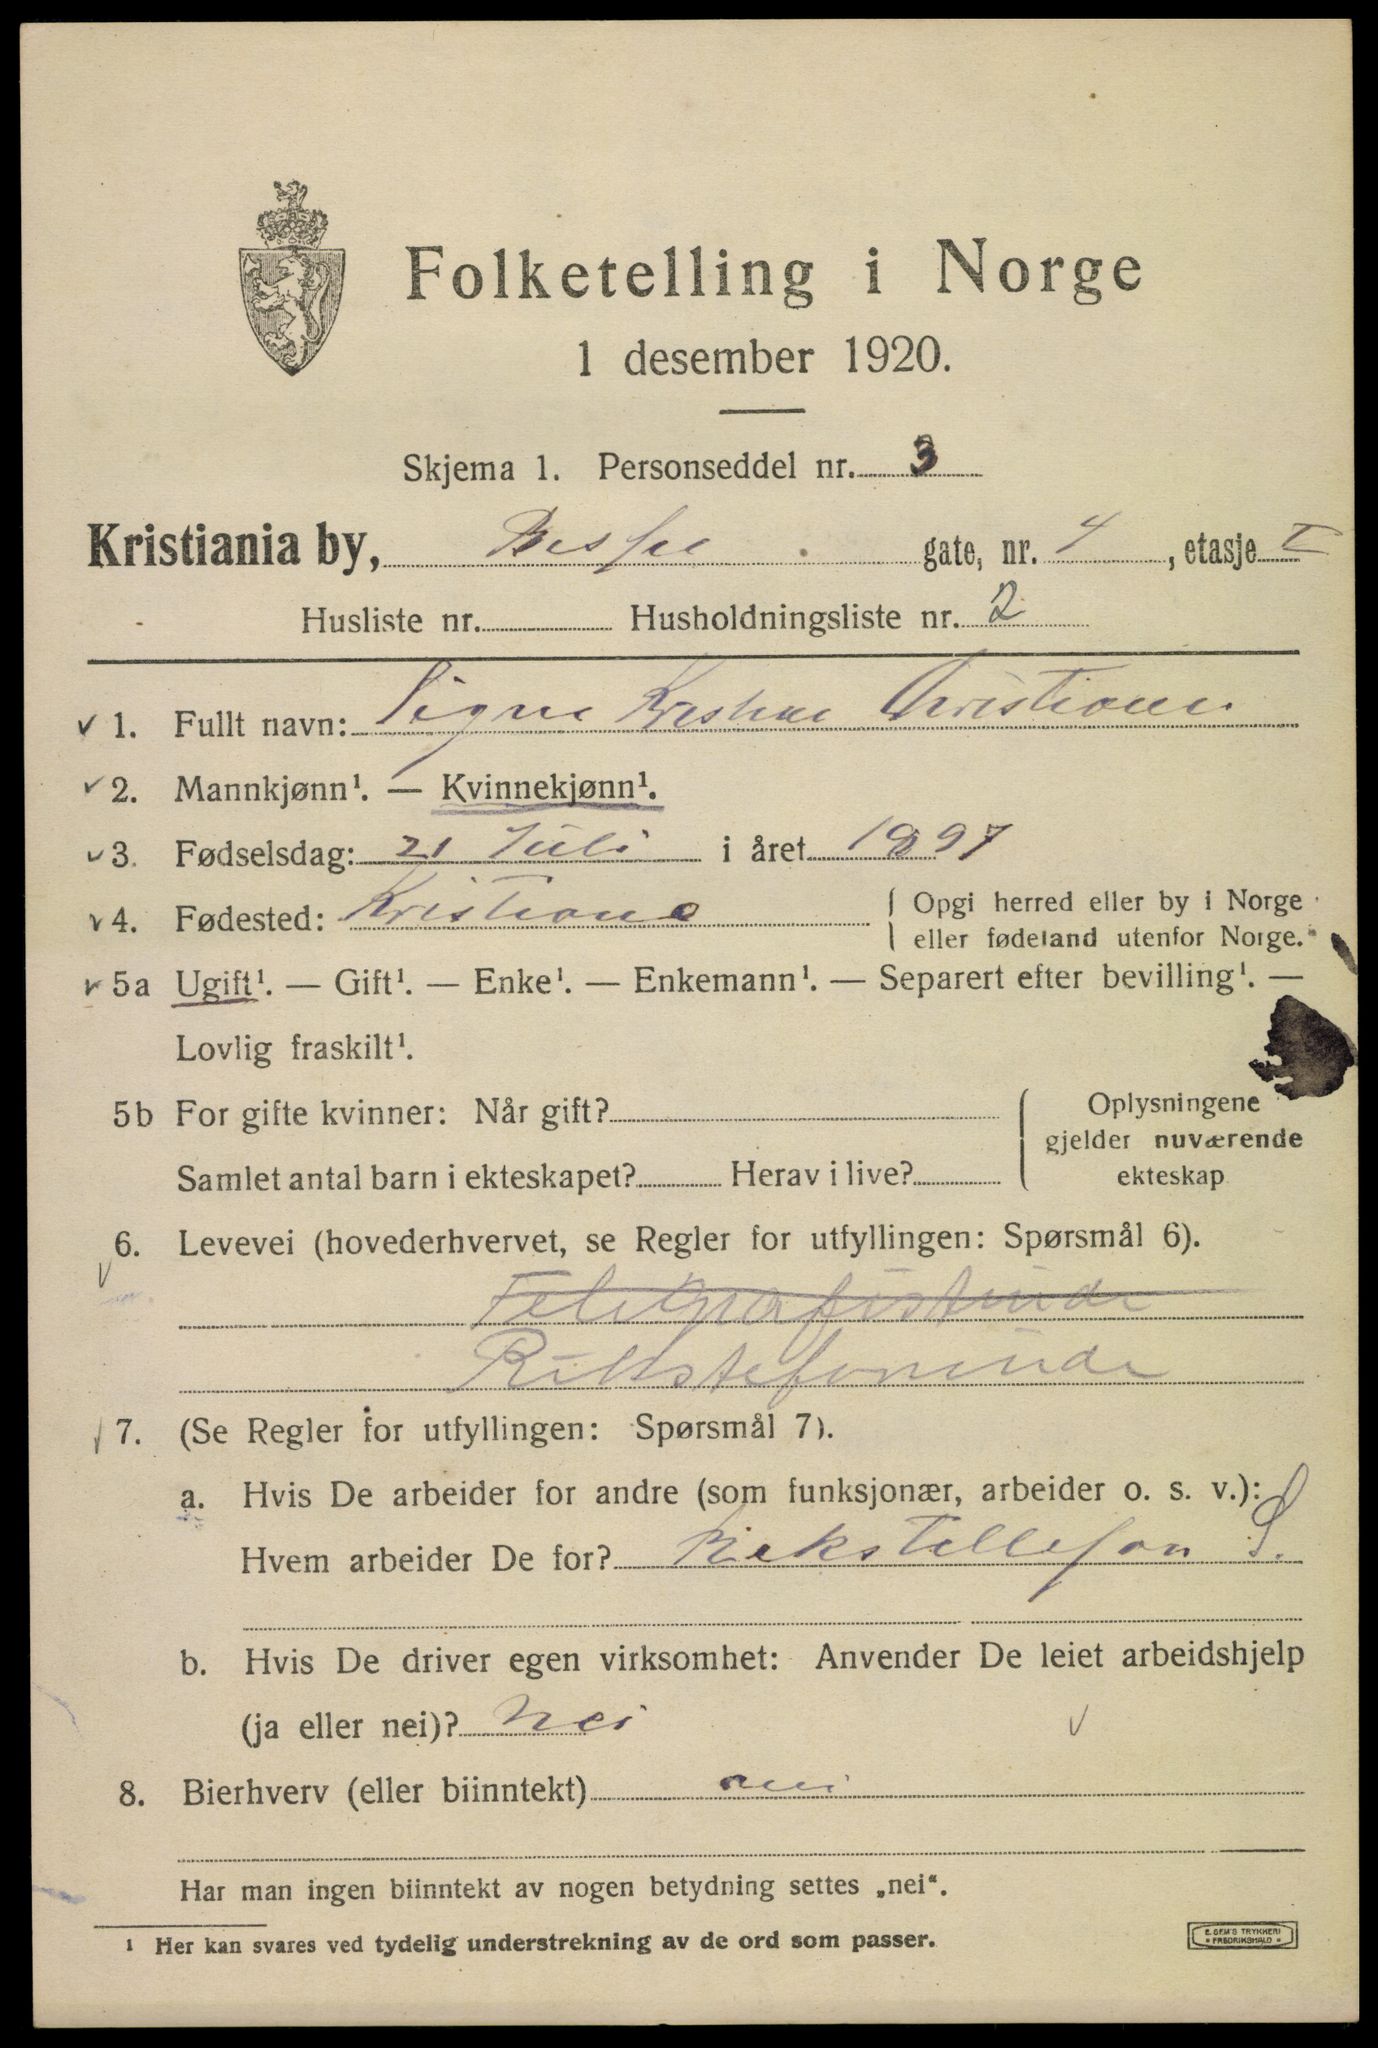 Folketelling i Norge
1 desember 1920.
Skjema 1. Personseddel nr. 3
Kristiania by, gate, nr. 4, etasje I
Husliste nr. Husholdningsliste nr. 2
1. Fullt navn: Signe
2. Mannkjønn¹. — Kvinnekjønn¹.
3. Fødselsdag: 21 Juli i året 1897
4. Fødested: Kristiana { Opgi herred eller by i Norge
eller fødeland utenfor Norge.
5a Ugift¹. — Gift¹. — Enke¹. — Enkemann¹. — Separert efter bevilling¹. —
Lovlig fraskilt¹.
5b For gifte kvinner: Når gift? { Oplysningene
gjelder nuværende
Samlet antal barn i ekteskapet? Herav i live? ekteskap
6. Levevei (hovederhvervet, se Regler for utfyllingen: Spørsmål 6).
Telegrafistinde
Rikstefoninde
7. (Se Regler for utfyllingen: Spørsmål 7).
a. Hvis De arbeider for andre (som funksjonær, arbeider o. s. v.):
Hvem arbeider De for? Rikstellefon S.
b. Hvis De driver egen virksomhet: Anvender De leiet arbeidshjelp
(ja eller nei)? Nei
8. Bierhverv (eller biinntekt) nei
Har man ingen biinntekt av nogen betydning settes „nei“.
¹ Her kan svares ved tydelig understrekning av de ord som passer.
E. SEM'S TRYKKERI
FREDRIKSHALD